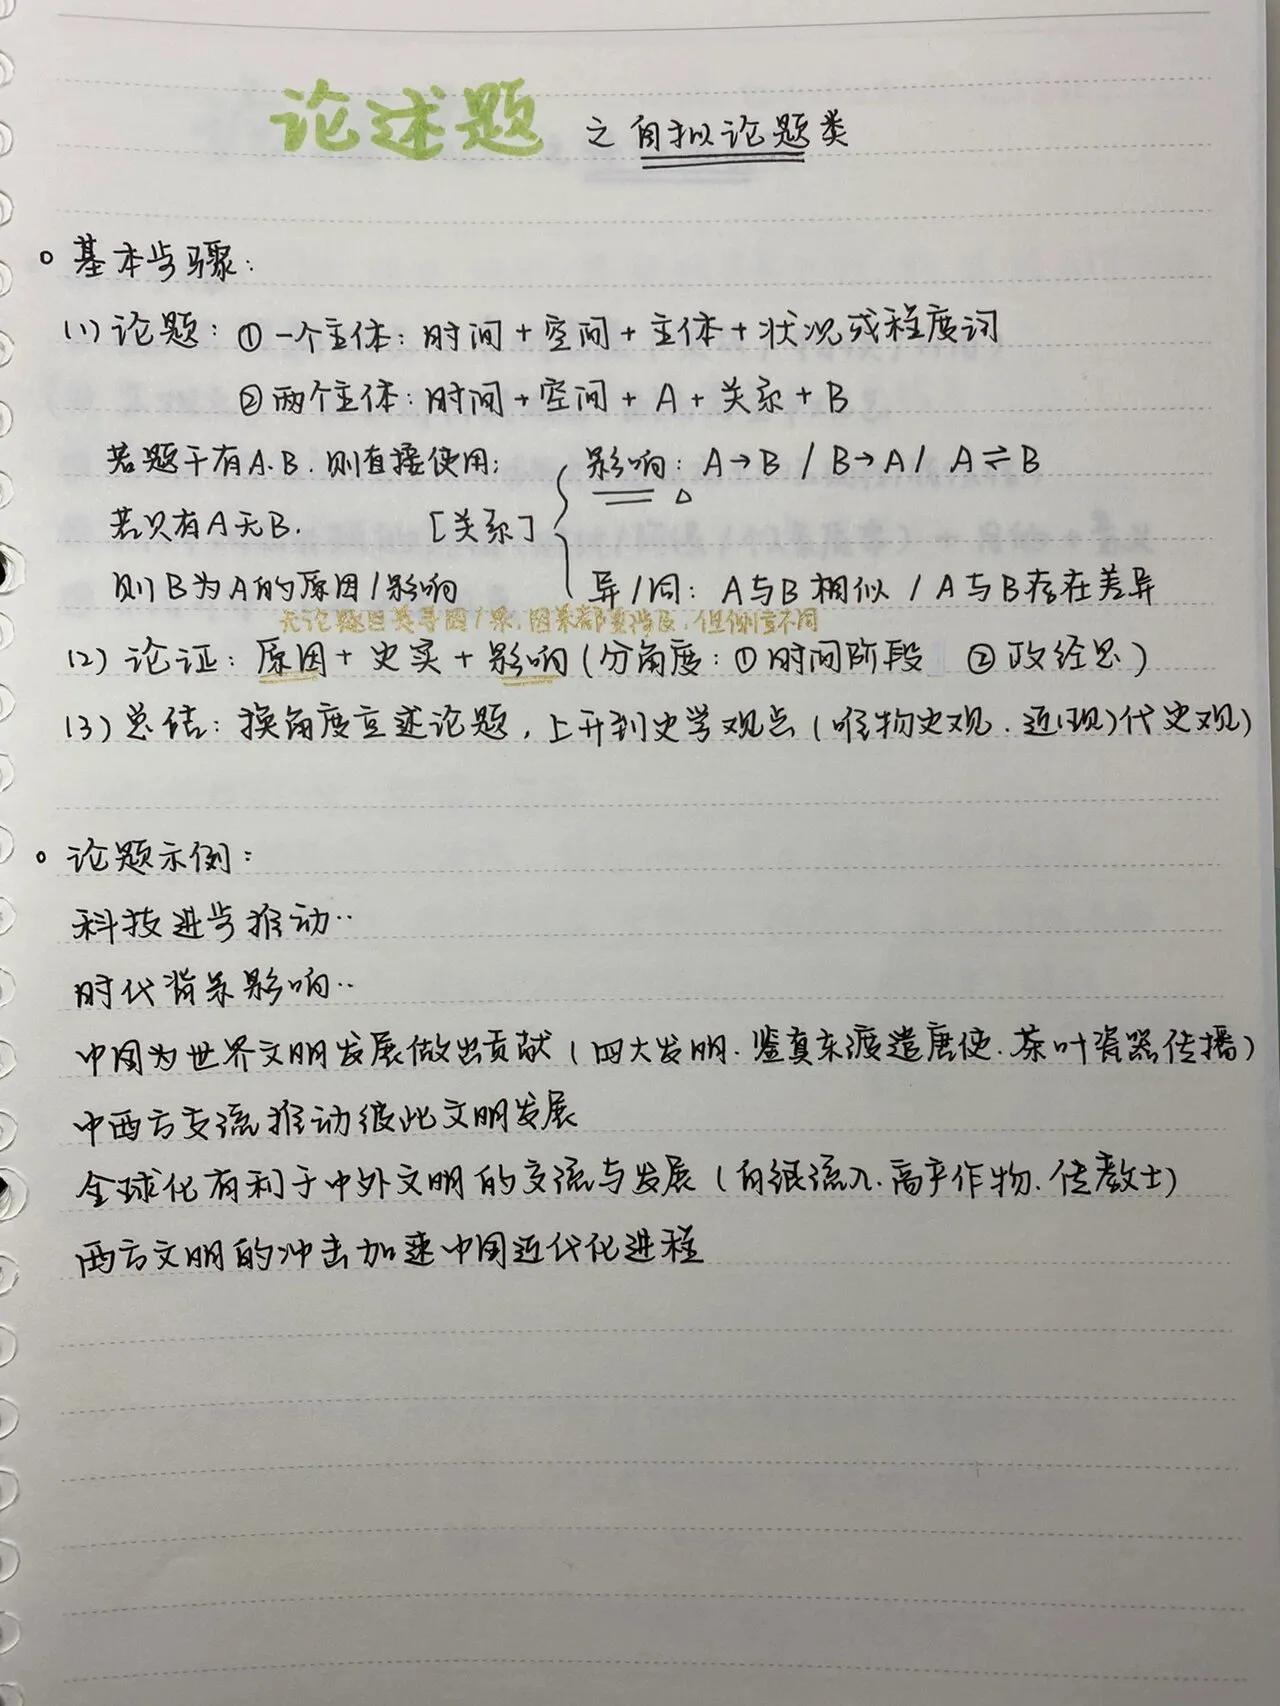 论述题 之自拟论题类
。基本步骤:
(1)论题:①一个主体:时间+空间+主体+状况或程度词
②两个主体:时间+空间+A+关系+B
若题干有A.B.则直接使用;
影响:A→B / B→A / A⇌B
若只有A无B.
[关系]
则B为A的原因/影响
异/同:A与B相似 / A与B存在差异
无论题目类寻因/果,因果都要涉及,但侧重不同
(2)论证:原因+史实+影响(分角度:①时间阶段 ②政经思)
(3)总结:换角度立述论题,上升到史学观点(唯物史观.近(现)代史观)
。论题示例:
科技进步推动..
时代背景影响..
中国为世界文明发展做出贡献(四大发明.鉴真东渡遣唐使.茶叶瓷器传播)
中西方交流推动彼此文明发展
全球化有利于中外文明的交流与发展(白银流入.高产作物.传教士)
西方文明的冲击加速中国近代化进程